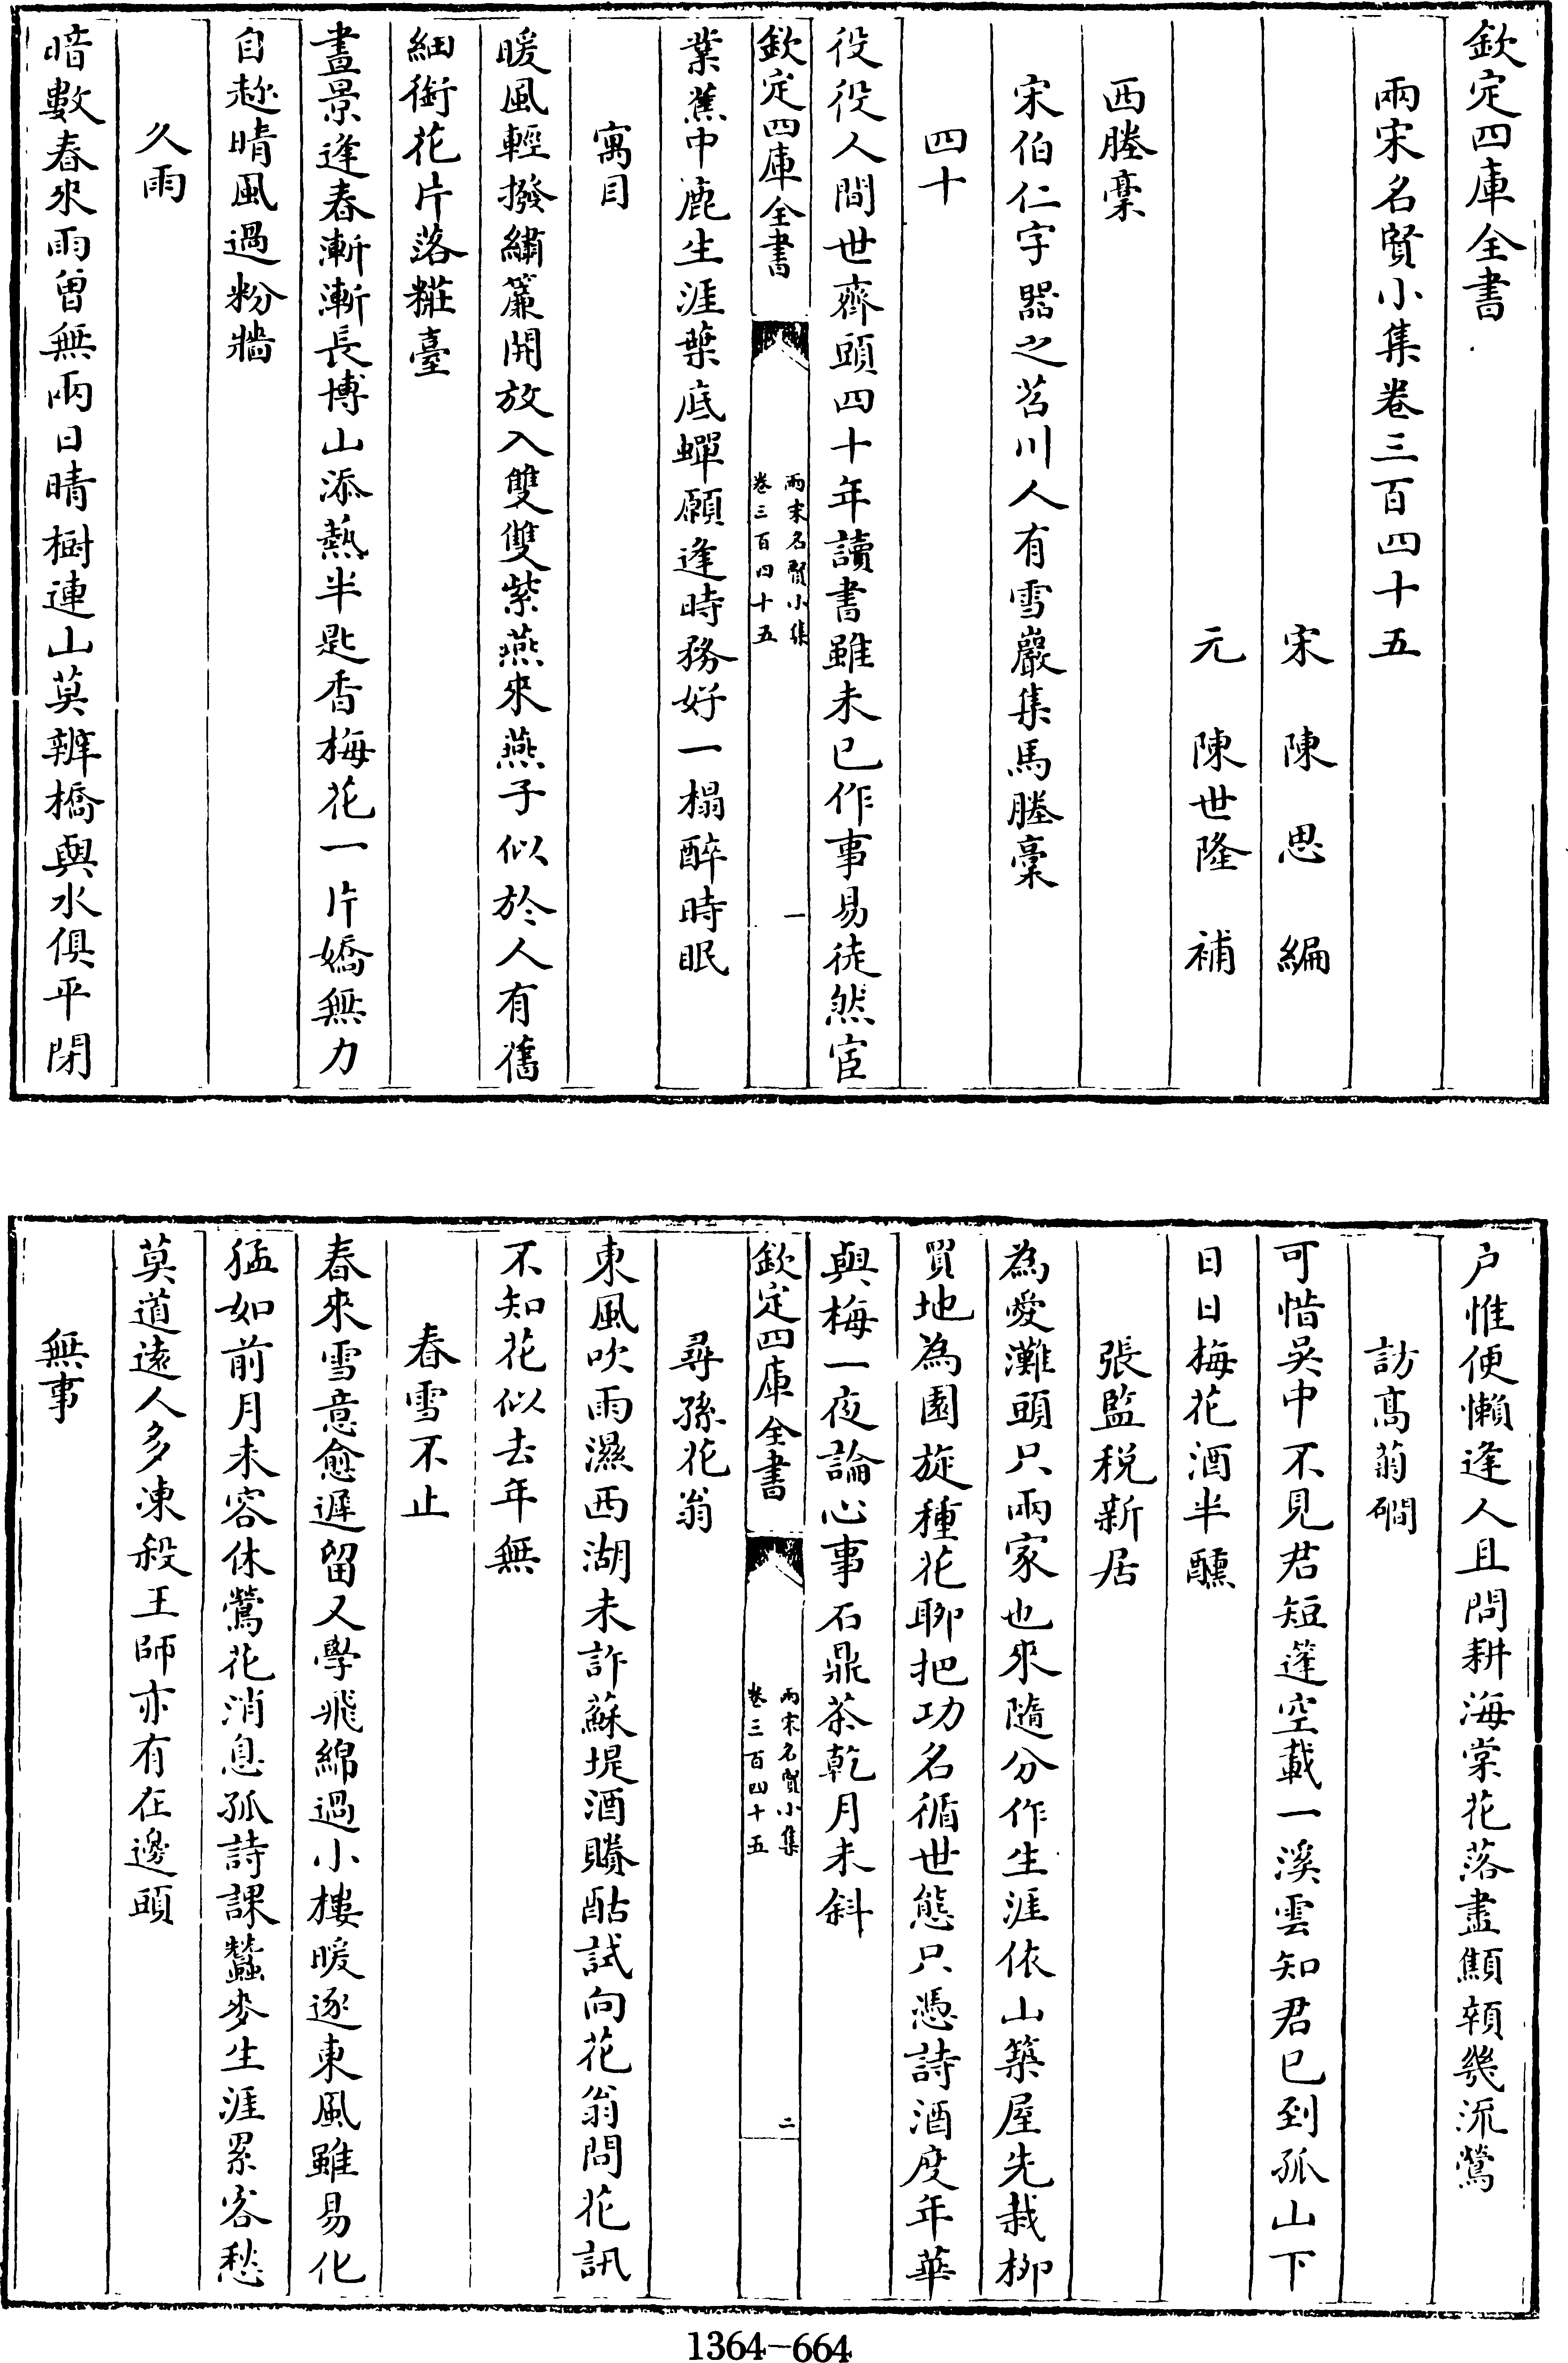 欽定四庫全書
兩宋名賢小集卷三百四十五
宋陳思編
元陳世隆補
西塍稾
宋伯仁字器之苕川人有雪巖集馬塍稾
四十
役役人間世齊頭四十年讀書雖未已作事易徒然宦
欽定四庫全書
兩宋名賢小集
卷三百四十五
一
業蕉中鹿生涯葉底蟬願逢時務好一榻醉時眠
寓目
暖風輕撥繡簾開放入雙雙紫燕來燕子似於人有舊
細銜花片落糚臺
晝景逢春漸漸長博山添熱半匙香梅花一片嬌無力
自趂晴風過粉牆
久雨
暗數春來雨曾無兩日晴樹連山莫辨橋與水俱平閉
户惟便懶逢人且問耕海棠花落盡顦顇幾流鶯
訪髙菊磵
可惜吳中不見君短篷空載一溪雲知君已到孤山下
日日梅花酒半醺
張監税新居
為愛灘頭只兩家也來隨分作生涯依山築屋先栽柳
買地為園旋種花聊把功名循世態只憑詩酒度年華
與梅一夜論心事石鼎茶乾月未斜
欽定四庫全書
兩宋名賢小集
卷三百四十五
二
尋孫花翁
東風吹雨濕西湖未許蘇堤酒賸酤試向花翁問花訊
不知花似去年無
春雪不止
春來雪意愈遲留又學飛綿過小樓暖逐東風雖易化
猛如前月未容休鶯花消息孤詩課蠶麥生涯累客愁
莫道遠人多凍殺王師亦有在邊頭
無事
1364-664